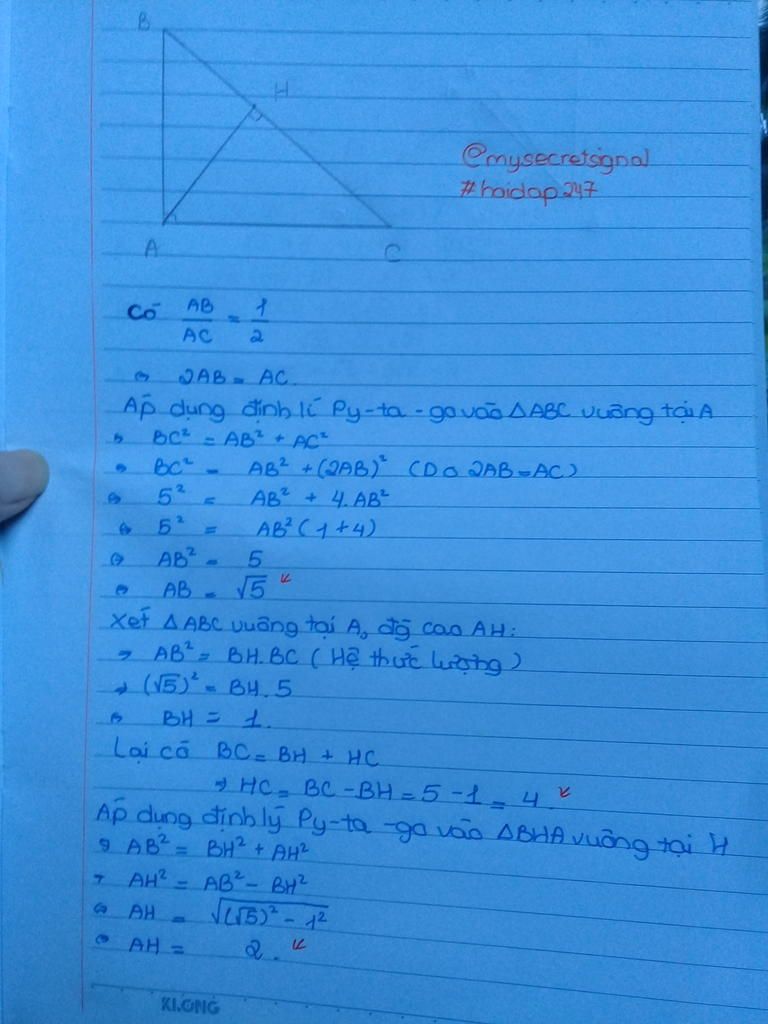 B
H
@mysecretsignal
#hoidap247
A
C
Có AB/AC = 1/2
⇔ 2AB = AC.
Áp dụng định lí Py-ta-go vào ΔABC vuông tại A
⇒ BC² = AB² + AC²
⇔ BC² = AB² + (2AB)² (Do 2AB=AC)
⇔ 5² = AB² + 4.AB²
⇔ 5² = AB²(1+4)
⇔ AB² = 5
⇔ AB = √5
Xét ΔABC vuông tại A, đg cao AH:
⇒ AB² = BH.BC (Hệ thức lượng)
⇒ (√5)² = BH.5
⇔ BH = 1.
Lại có BC = BH + HC
⇒ HC = BC - BH = 5 - 1 = 4.
Áp dụng định lý Py-ta-go vào ΔBHA vuông tại H
⇒ AB² = BH² + AH²
⇒ AH² = AB² - BH²
⇔ AH = √((√5)² - 1²)
⇔ AH = 2.
KLONG